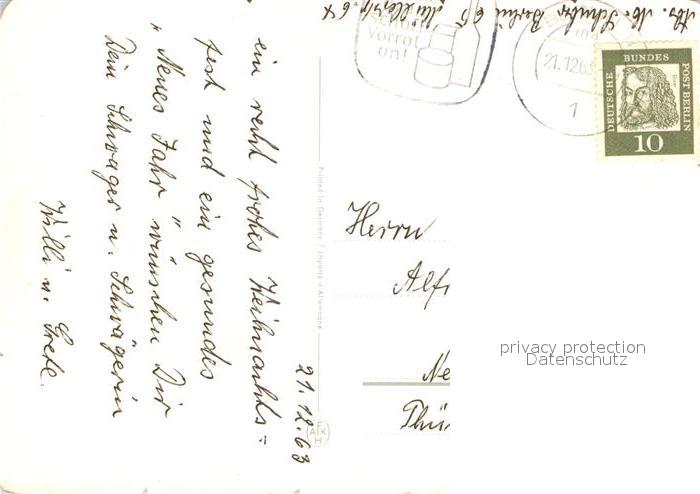 21.12.63
ein recht frohes Weihnachts=
fest und ein gesundes
"Neues Jahr" wünschen Dir
Dein Schwager u. Schwägerin
Willi u. Grete.
Berlin 65
Vorrat
an!
21.12.63
1
DEUTSCHE BUNDESPOST BERLIN
10
Printed in Germany / Imprimé d'Allemagne
Herrn
Alf
Ne
Thü
privacy protection
Datenschutz